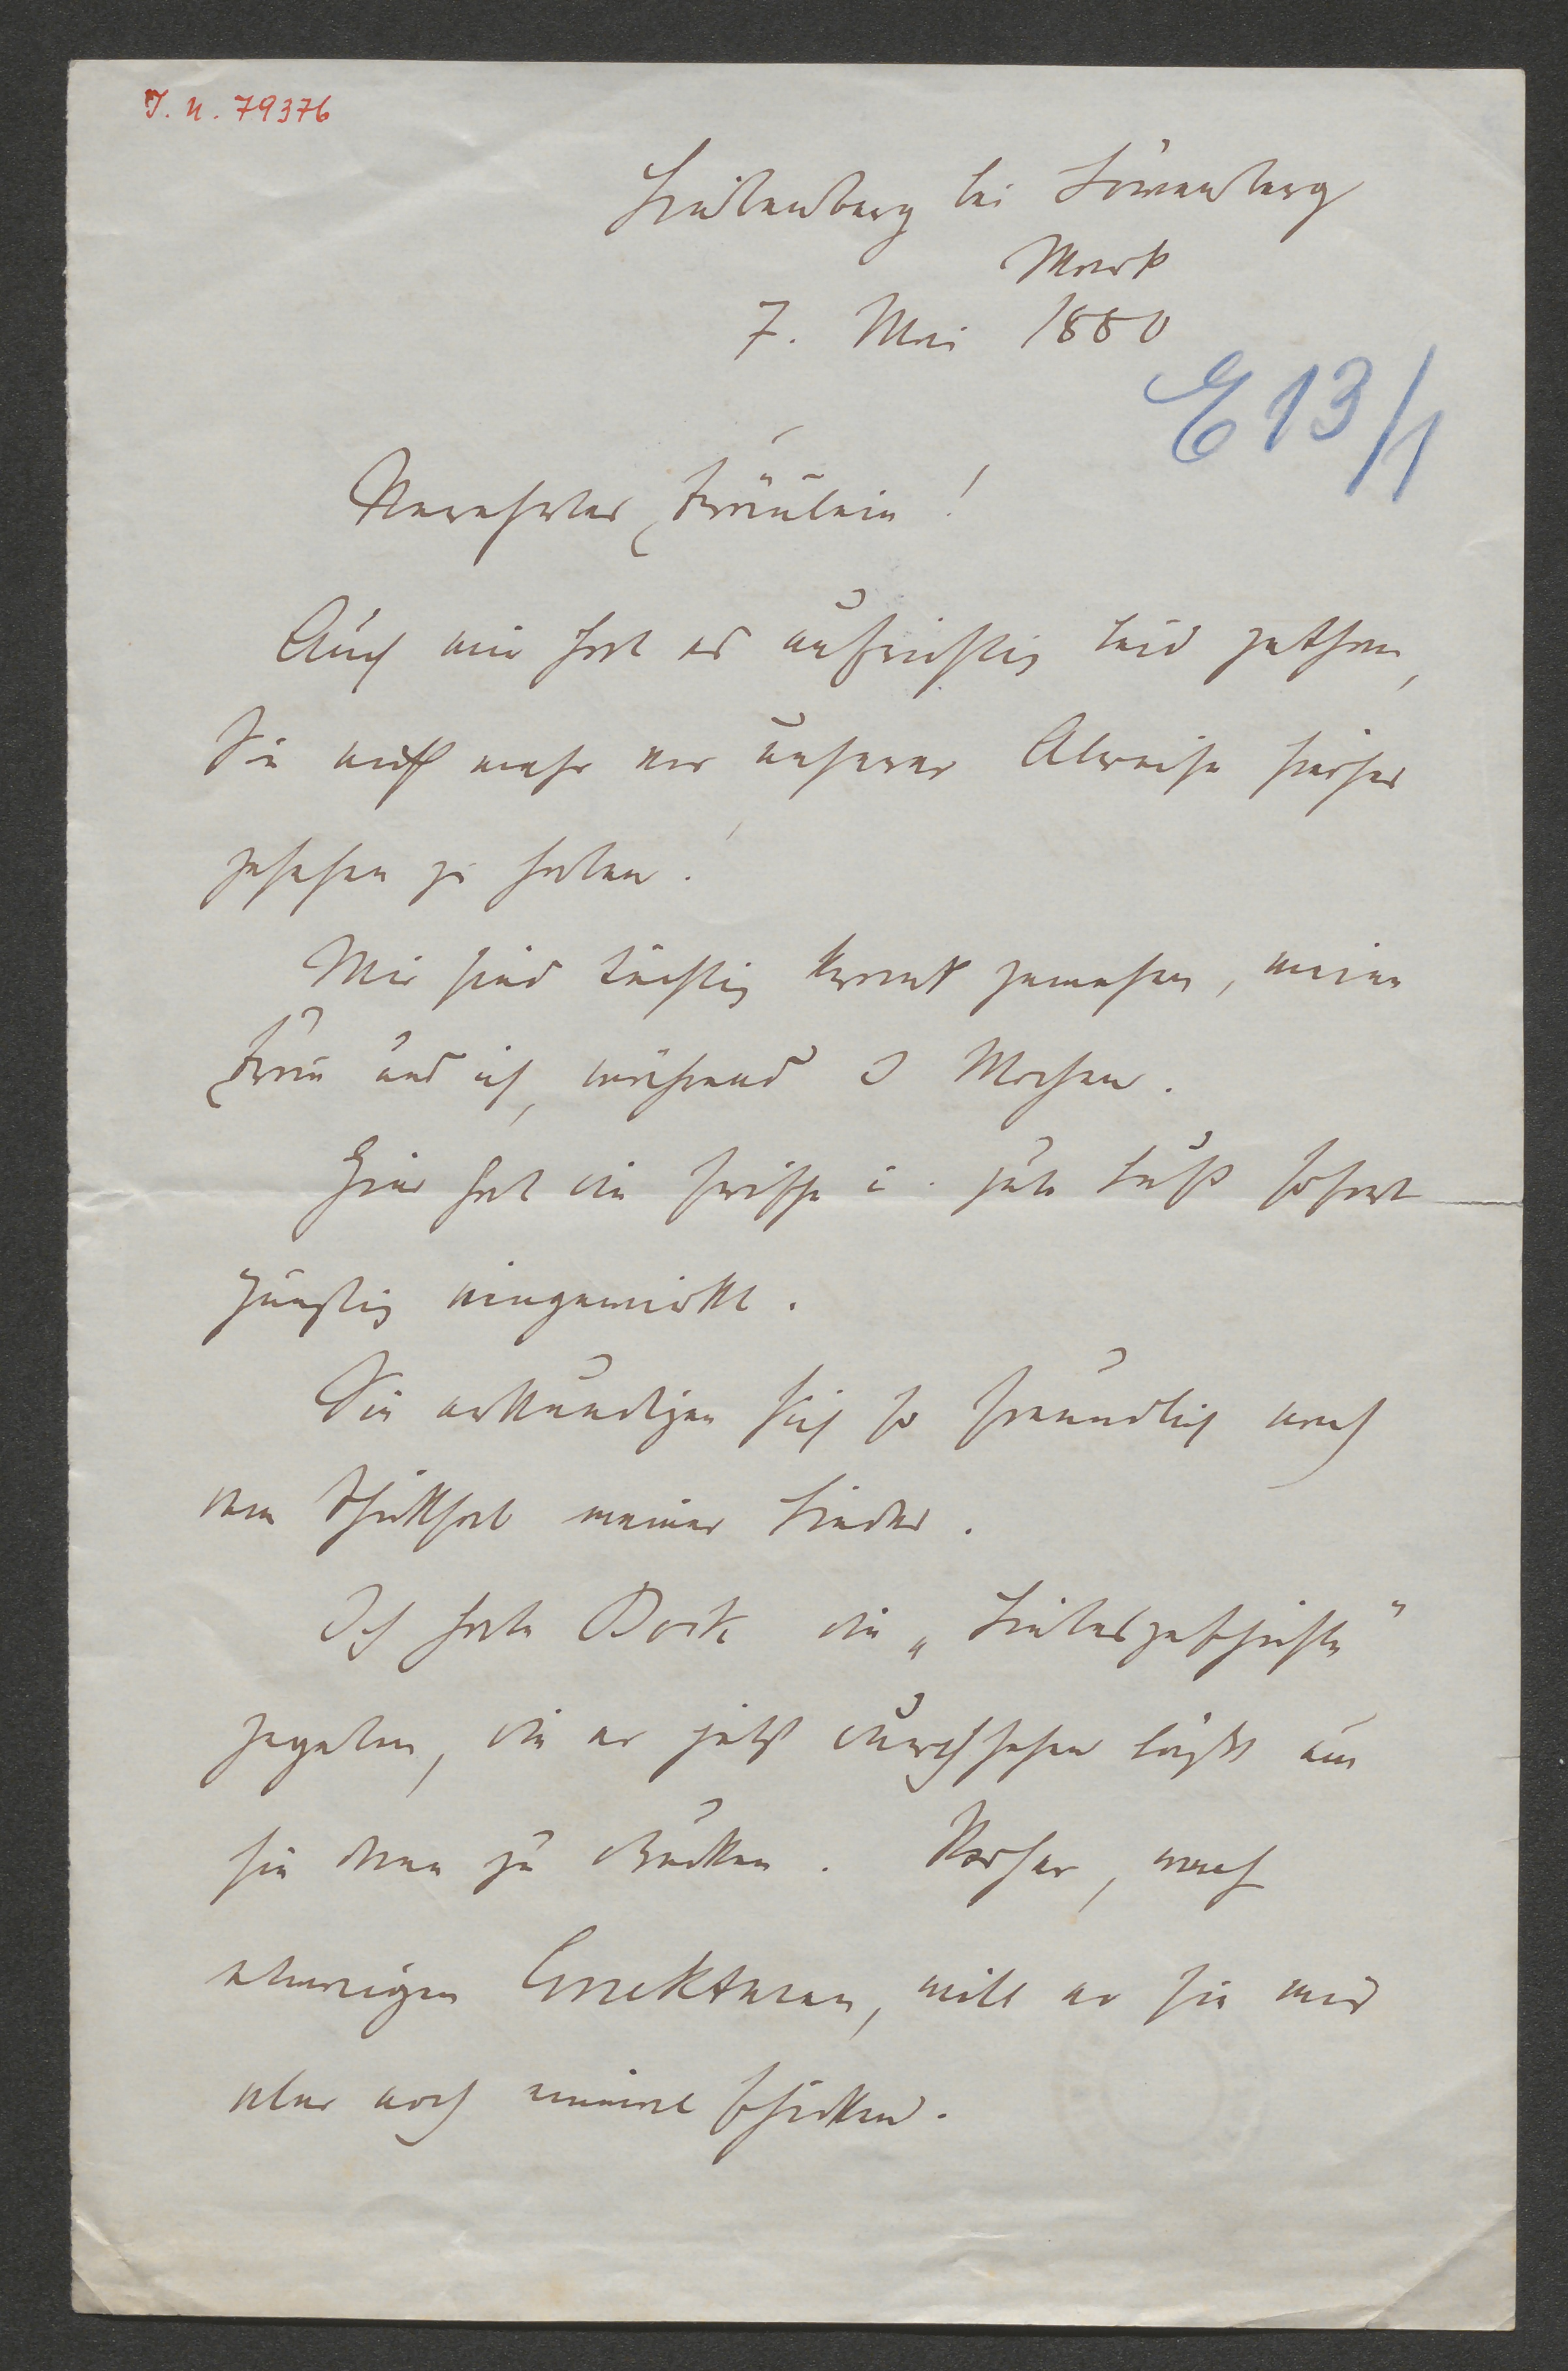 J. N. 79376
Liebenberg bei Löwenberg
Mark
7. Mai 1880
E 13/1
Verehrtes Fräulein!
Auch mir hat es aufrichtig leid gethan,
Sie nicht mehr vor unserer Abreise hierher
gesehen zu haben!
Wir sind tüchtig krank gewesen, meine
Frau und ich, während 3 Wochen.
Hier hat die frische u. gute Luft sofort
günstig eingewirkt.
Sie erkundigen sich so freundlich nach
dem Schicksal meiner Lieder.
Ich habe Bock die „Liebesgeschichte"
gegeben, die er jetzt durchsehen läßt um
sie dann zu drucken. Vorher, nach
etwaigen Correkturen, will er sie mir
aber noch einmal schicken.